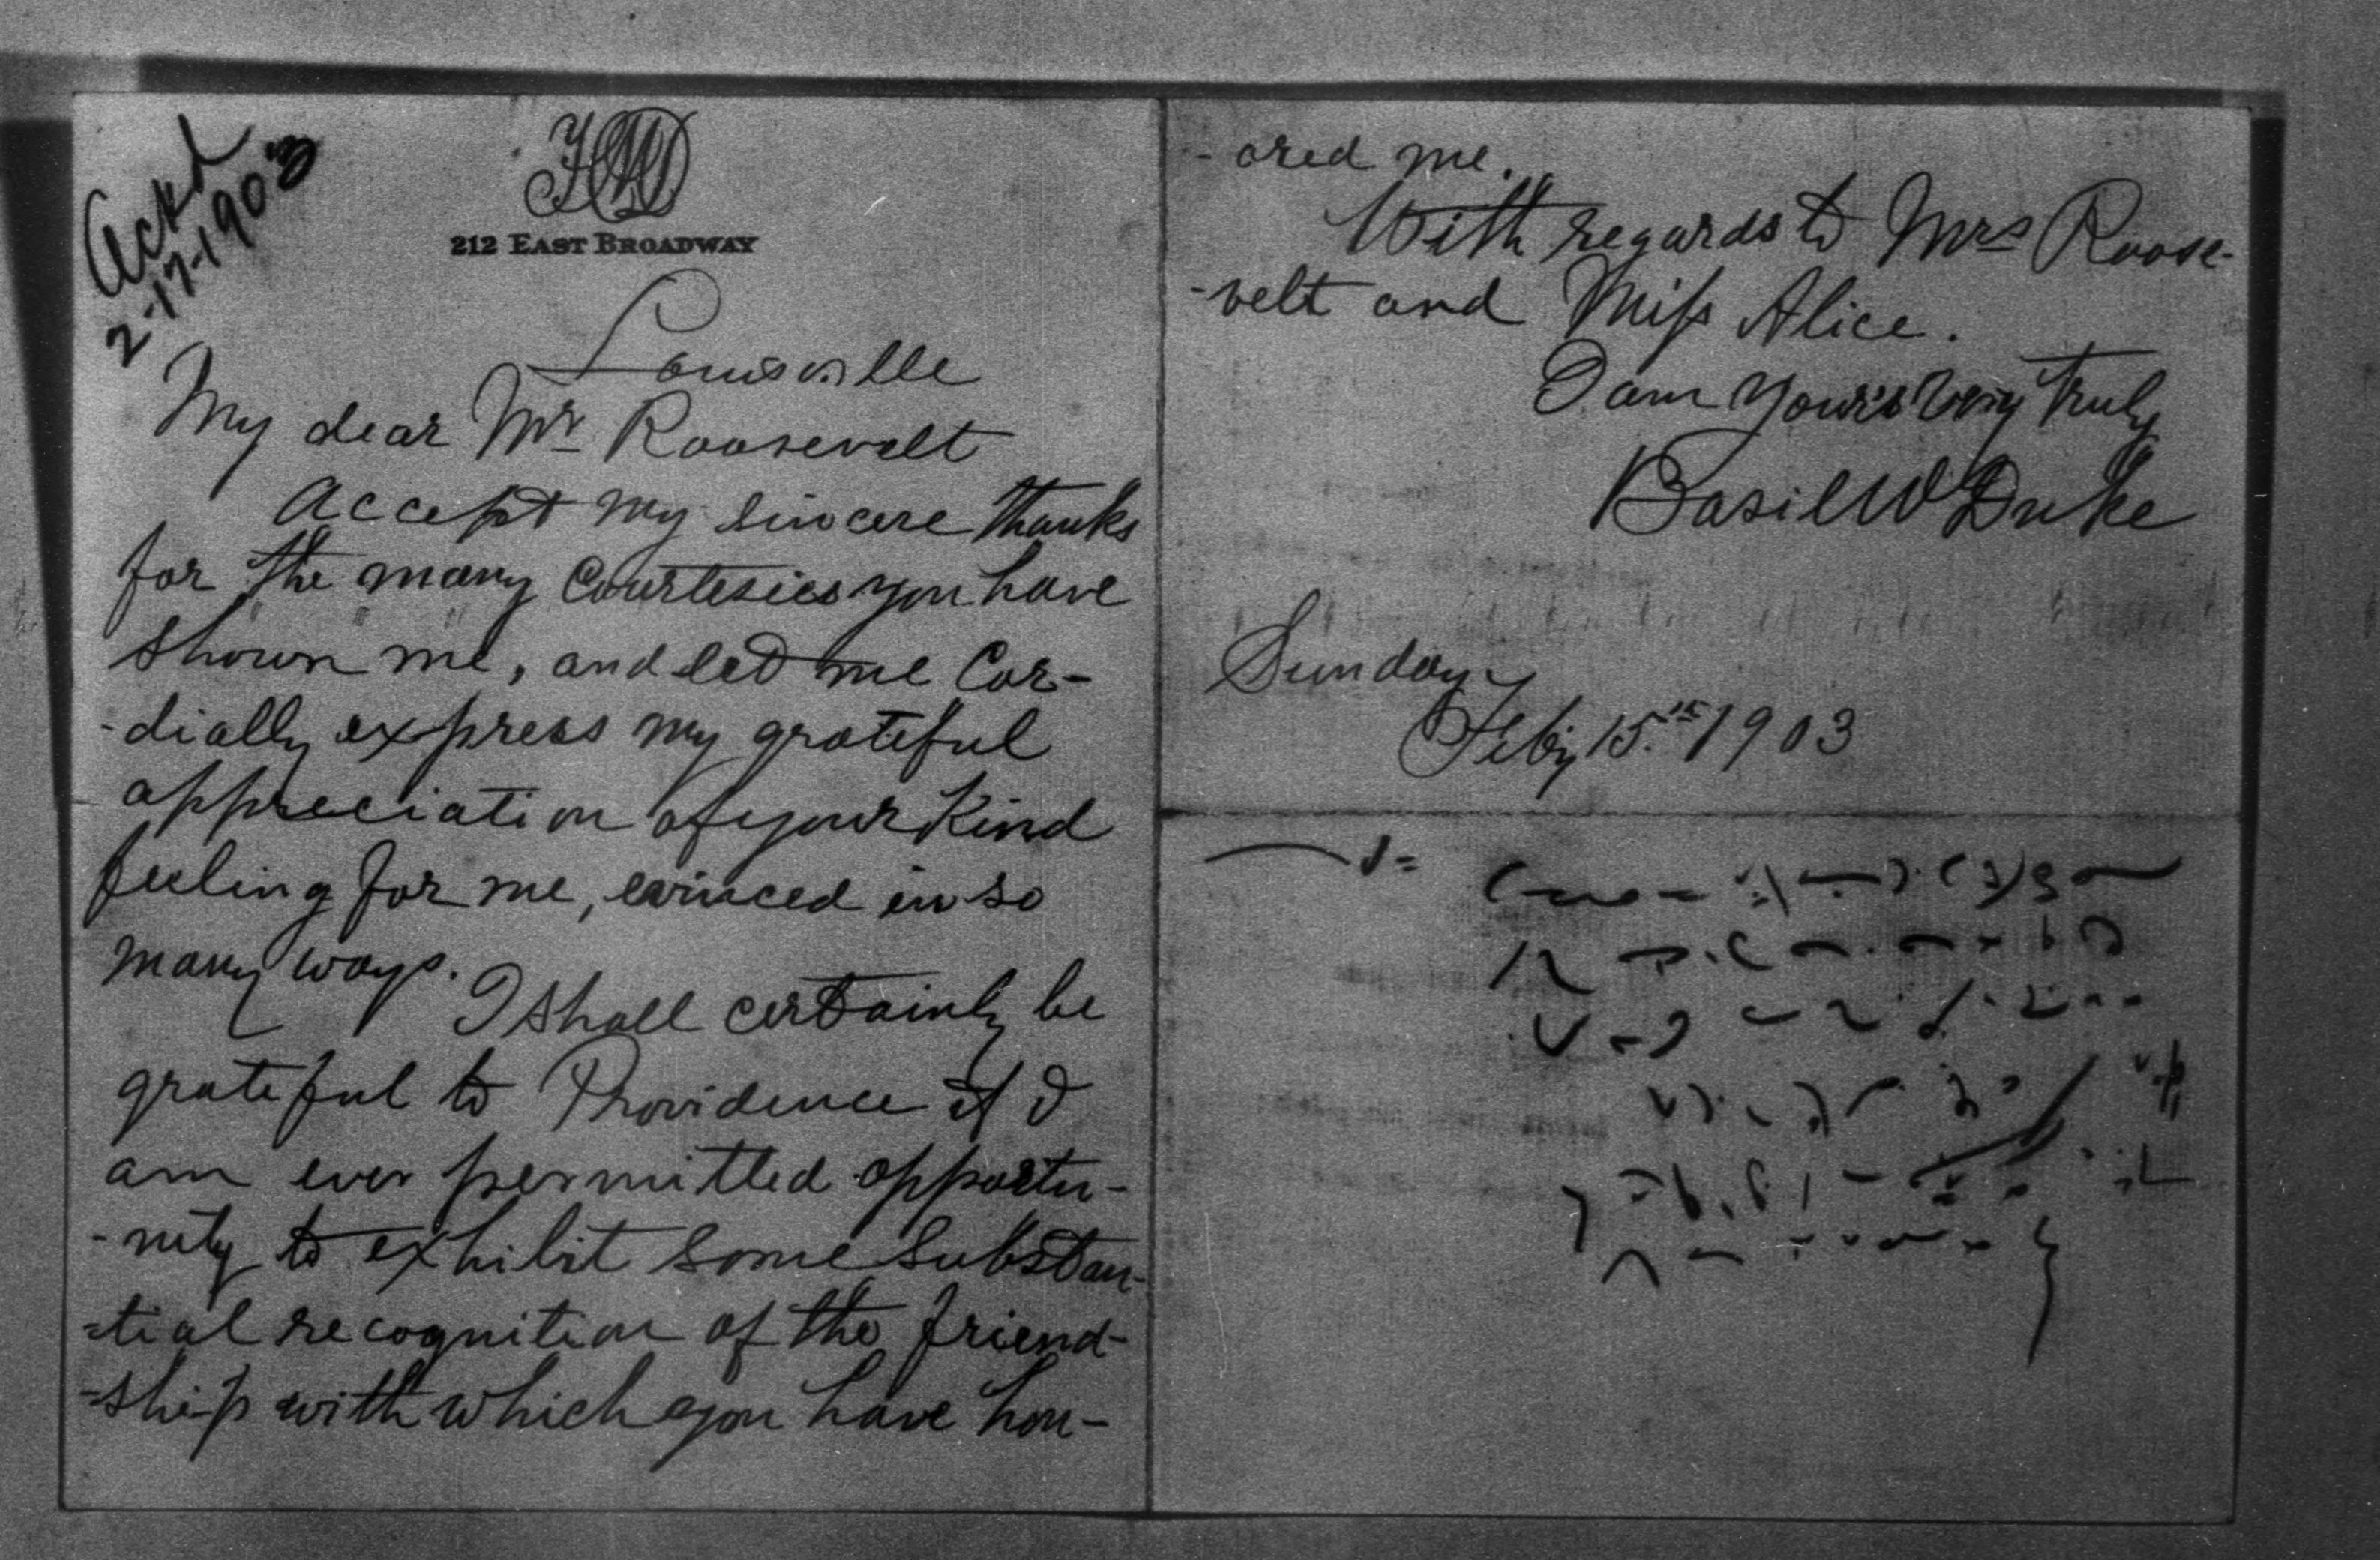 Ackd
2-17-1903
212 EAST BROADWAY
Louisville
My dear Mr Roosevelt
Accept my sincere thanks
for the many courtesies you have
shown me, and let me cor-
-dially express my grateful
appreciation of your kind
feeling for me, evinced in so
many ways.
I shall certainly be
grateful to Providence if I
am ever permitted opportu-
-nity to exhibit some substan-
=tial recognition of the friend-
=ship with which you have hon-
-ored me.
With regards to Mrs Roose-
-velt and Miss Alice.
I am yours very truly
Basil W Duke
Sunday
Feby 15th 1903